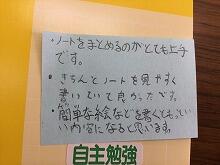 ・ノートをまとめるのがとても上手
です。
・きちんとノートを見やすく
書いていて良かったです。
・簡単な絵などを書くともっとい
い内容になると思います。
自主勉強